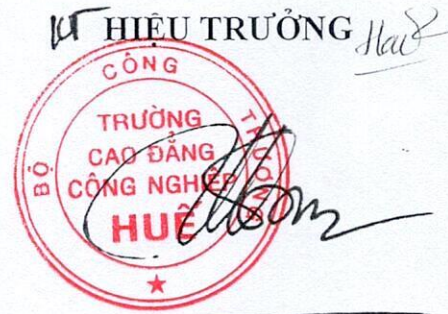 KT HIỆU TRƯỞNG
BỘ CÔNG THƯƠNG
TRƯỜNG
CAO ĐẲNG
CÔNG NGHIỆP
HUẾ